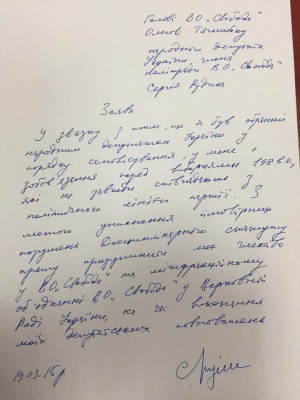 Голові ВО „Свобода"
Олегові Тягнибоку
народного депутата
України, члена
політради ВО „Свобода"
Сергія Рудика
Заява
У зв'язку з тим, що я був обраний
народним депутатом України у
порядку самовисування, у мене є
зобов'язання перед виборцями 198 в.о.,
які не завжди співпадають з
політичною лінією партії. З
метою уникнення імовірних
порушень Дисциплінарного статуту
прошу призупинити моє членство
у ВО „Свобода" та міжфракційному
об'єднанні ВО „Свобода" у Верховній
Раді України, на час виконання
моїх депутатських повноважень
19.03.15р.